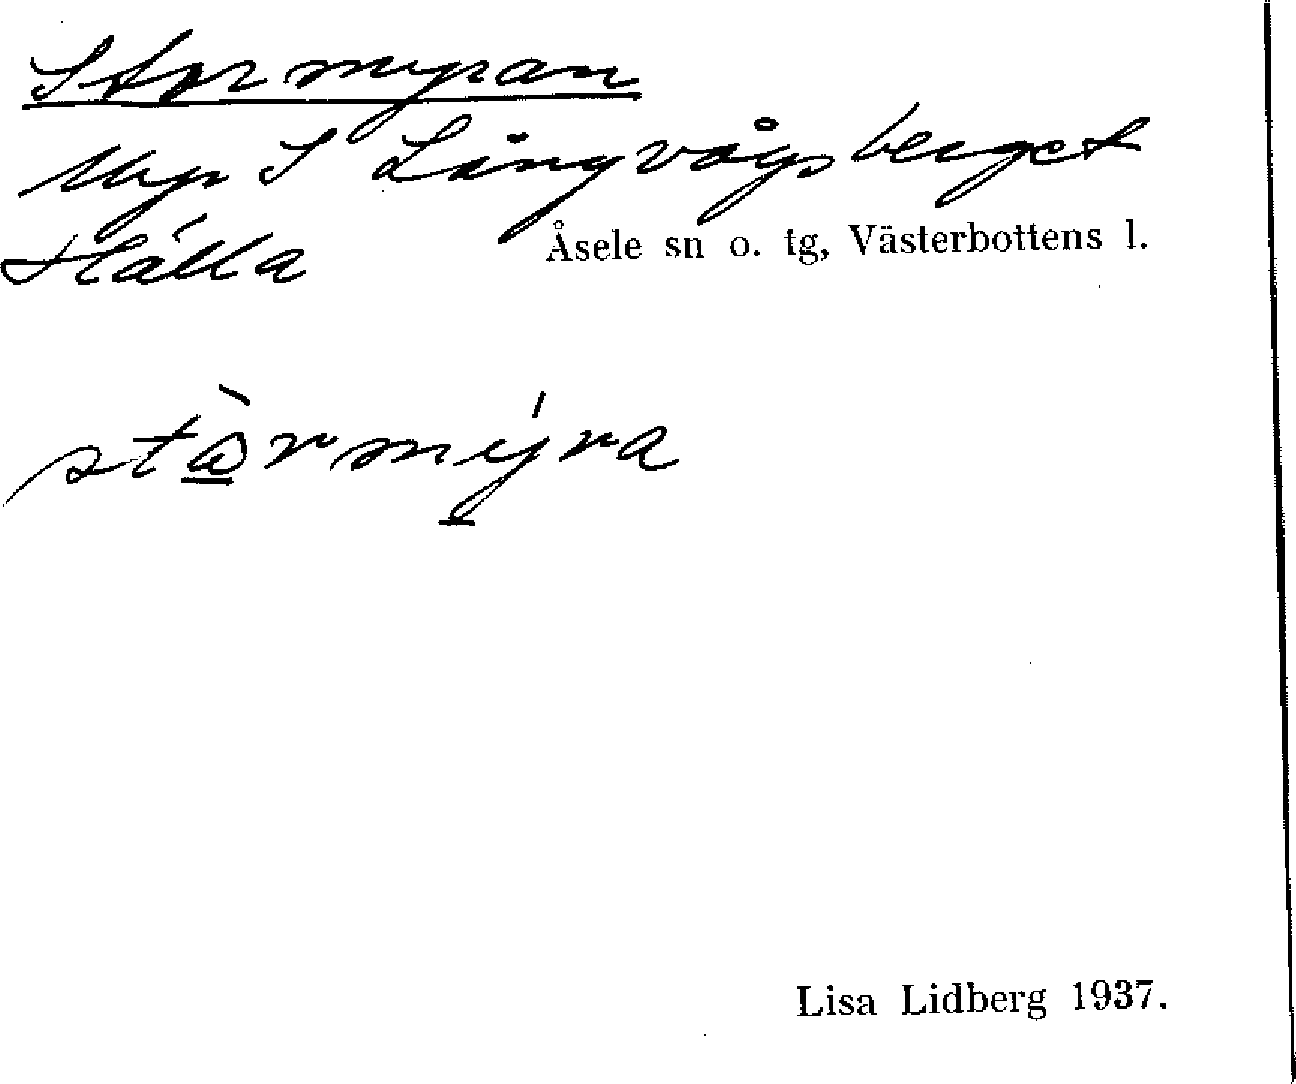 Stormyran
Myr S Långvågsberget
Hälla
Åsele sn o. tg, Västerbottens l.
stå̠̀rmý̠ra
Lisa Lidberg 1937.